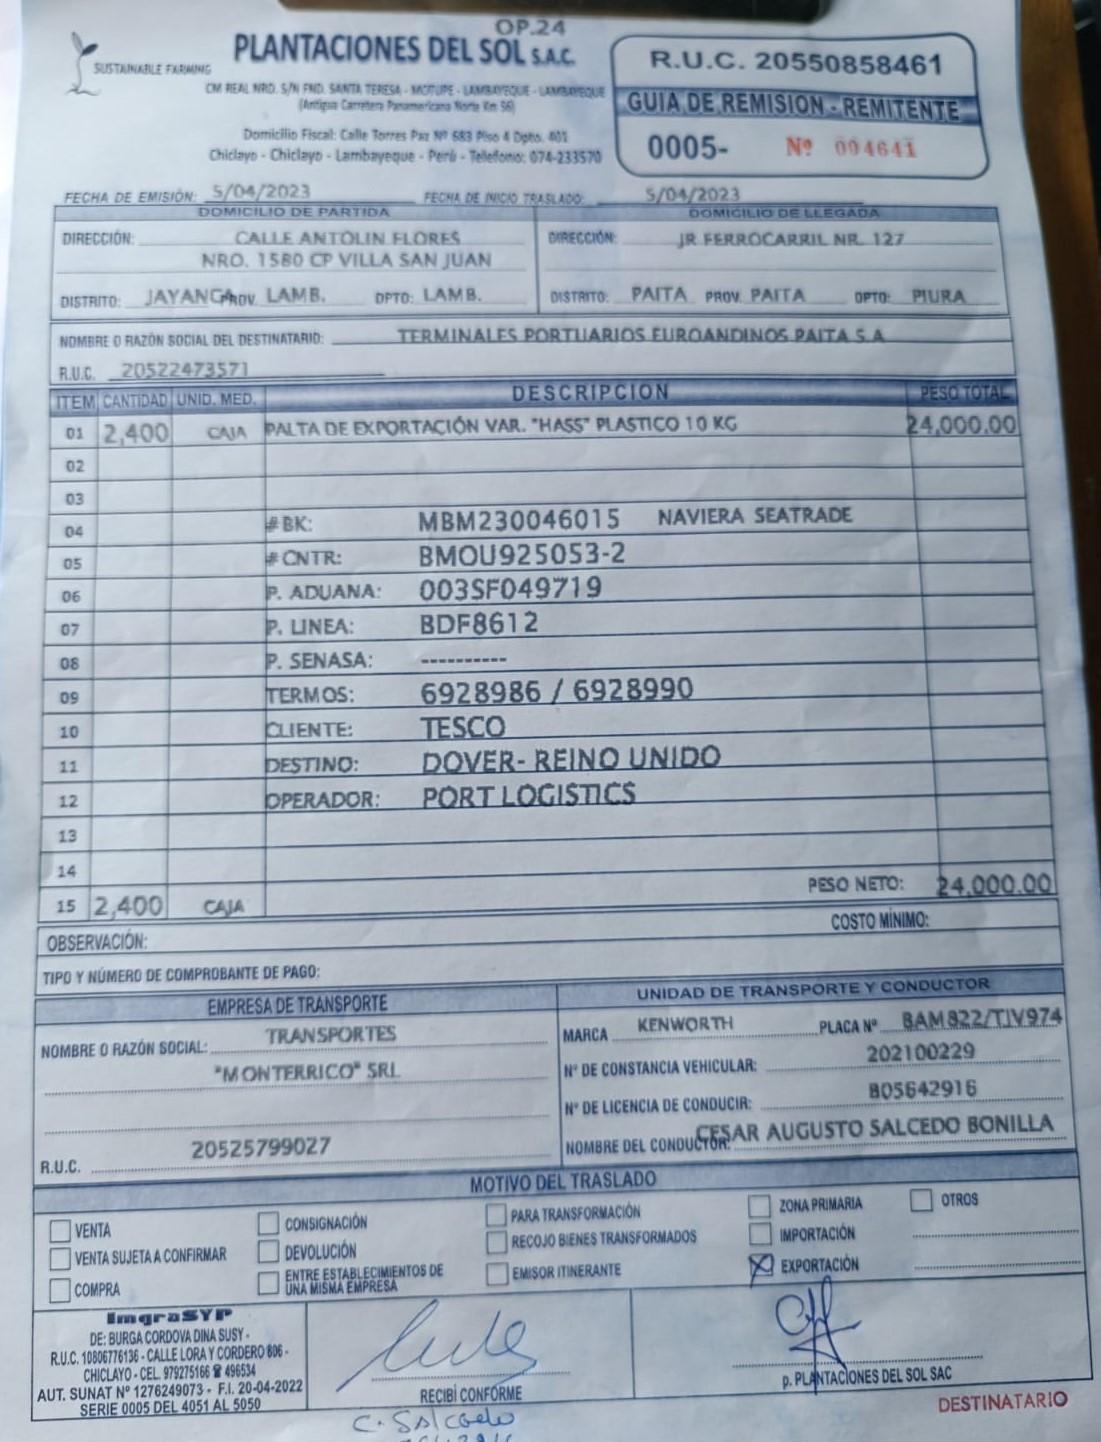 OP.24
SUSTAINABLE FARMING
PLANTACIONES DEL SOL S.A.C.
CM REAL NRO. S/N FND. SANTA TERESA - MOTUPE - LAMBAYEQUE - LAMBAYEQUE
(Antigua Carretera Panamericana Norte Km 56)
Domicilio Fiscal: Calle Torres Paz Nº 683 Piso 4 Dpto. 401
Chiclayo - Chiclayo - Lambayeque - Perú - Telefono: 074-233570
R.U.C. 20550858461
GUIA DE REMISION - REMITENTE
0005- Nº 004641
FECHA DE EMISIÓN: 5/04/2023 FECHA DE INICIO TRASLADO: 5/04/2023
DOMICILIO DE PARTIDA DOMICILIO DE LLEGADA
DIRECCIÓN: CALLE ANTOLIN FLORES DIRECCIÓN: JR FERROCARRIL NR. 127
NRO. 1580 CP VILLA SAN JUAN
DISTRITO: JAYANCA PROV. LAMB. DPTO: LAMB. DISTRITO: PAITA PROV. PAITA DPTO: PIURA
NOMBRE O RAZÓN SOCIAL DEL DESTINATARIO: TERMINALES PORTUARIOS EUROANDINOS PAITA S.A
R.U.C. 20522473571
ITEM CANTIDAD UNID. MED. DESCRIPCION PESO TOTAL
01 2,400 CAJA PALTA DE EXPORTACIÓN VAR. "HASS" PLASTICO 10 KG 24,000.00
02
03
04 #BK: MBM230046015 NAVIERA SEATRADE
05 #CNTR: BMOU925053-2
06 P. ADUANA: 003SF049719
07 P. LINEA: BDF8612
08 P. SENASA: ----------
09 TERMOS: 6928986 / 6928990
10 CLIENTE: TESCO
11 DESTINO: DOVER- REINO UNIDO
12 OPERADOR: PORT LOGISTICS
13
14
PESO NETO: 24,000.00
15 2,400 CAJA
COSTO MÍNIMO:
OBSERVACIÓN:
TIPO Y NÚMERO DE COMPROBANTE DE PAGO:
EMPRESA DE TRANSPORTE UNIDAD DE TRANSPORTE Y CONDUCTOR
NOMBRE O RAZÓN SOCIAL: TRANSPORTES
"MONTERRICO" SRL
R.U.C. 20525799027
MARCA KENWORTH PLACA Nº BAM822/TJV974
Nº DE CONSTANCIA VEHICULAR: 202100229
Nº DE LICENCIA DE CONDUCIR: B05642916
NOMBRE DEL CONDUCTOR: CESAR AUGUSTO SALCEDO BONILLA
MOTIVO DEL TRASLADO
VENTA
VENTA SUJETA A CONFIRMAR
COMPRA
CONSIGNACIÓN
DEVOLUCIÓN
ENTRE ESTABLECIMIENTOS DE
UNA MISMA EMPRESA
PARA TRANSFORMACIÓN
RECOJO BIENES TRANSFORMADOS
EMISOR ITINERANTE
ZONA PRIMARIA
IMPORTACIÓN
EXPORTACIÓN
OTROS
ImgraSYP
DE: BURGA CORDOVA DINA SUSY -
R.U.C. 10806776136 - CALLE LORA Y CORDERO 806 -
CHICLAYO - CEL. 979275166 ☎ 496534
AUT. SUNAT Nº 1276249073 - F.I. 20-04-2022
SERIE 0005 DEL 4051 AL 5050
RECIBÍ CONFORME
C. Salcedo
p. PLANTACIONES DEL SOL SAC
DESTINATARIO